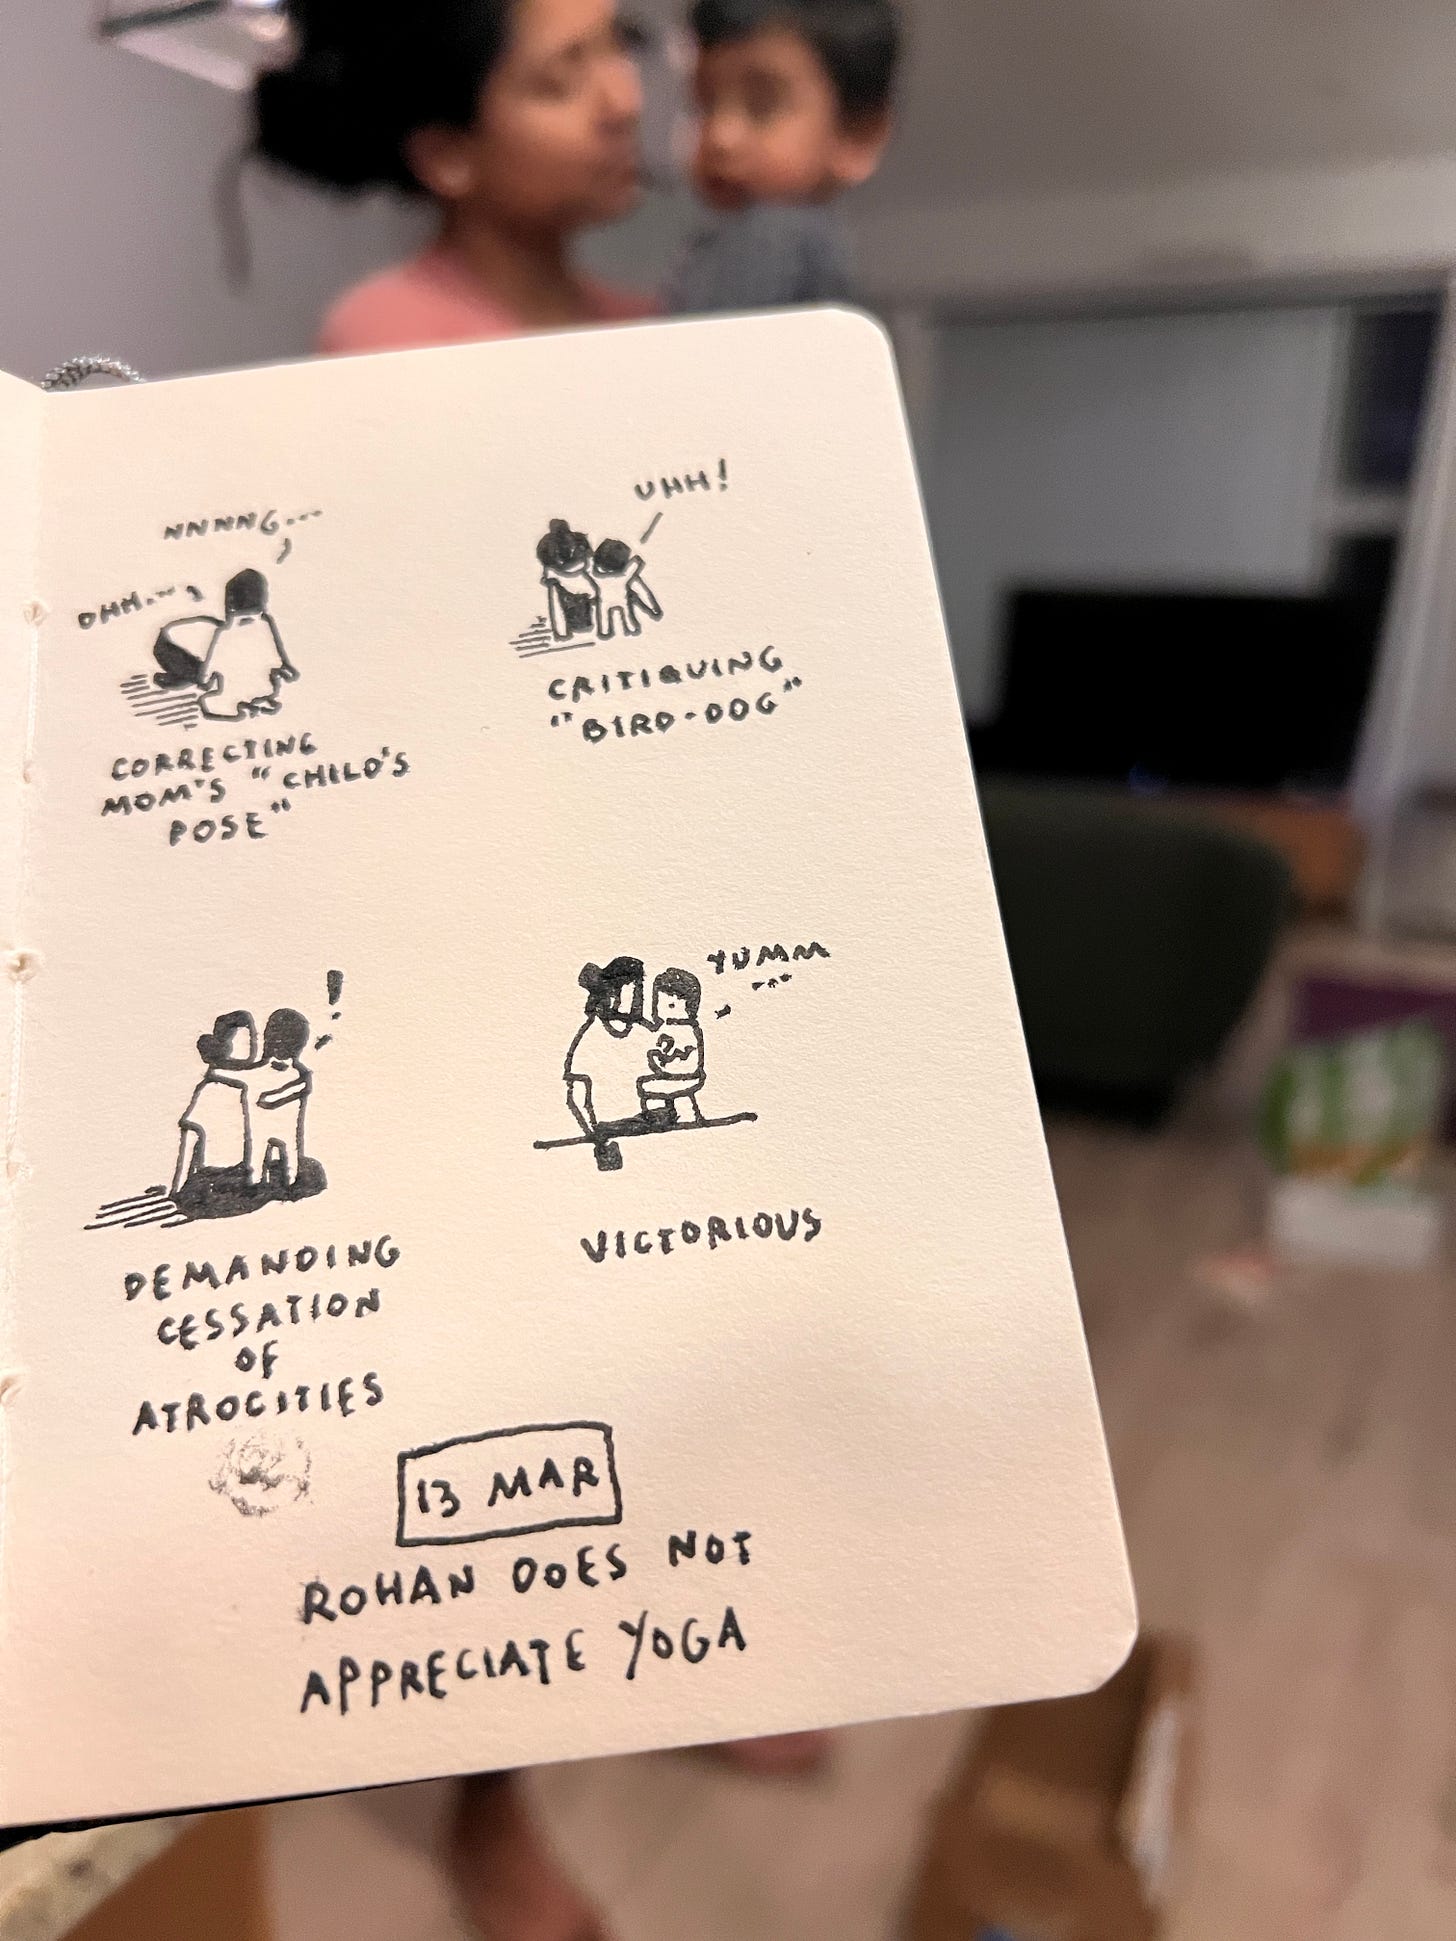 NNNNG...
OHH...
CORRECTING
MOM'S "CHILD'S
POSE"
UHH!
CRITIQUING
"BIRD-DOG"
!
DEMANDING
CESSATION
OF
ATROCITIES
YUMM
...
VICTORIOUS
13 MAR
ROHAN DOES NOT
APPRECIATE YOGA